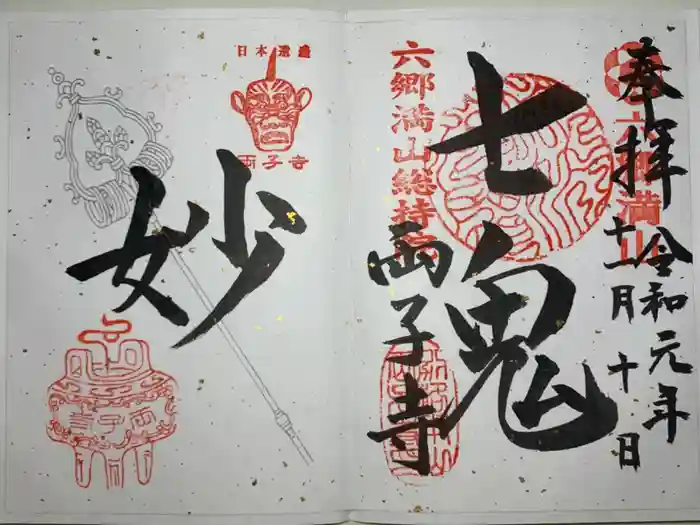 奉拝
令和元年
十一月十日
六郷満山
七鬼
六郷満山総持院
両子寺
妙
日本遺産
両子寺
両子寺